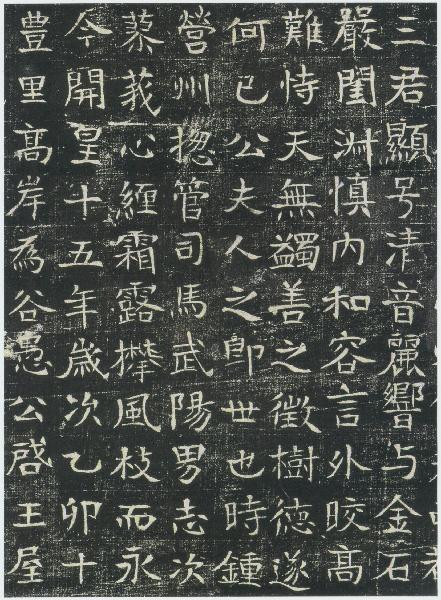 三君顯号清音麗響与金石
嚴閨淵慎內和容言外晈高
難恃天無蠲善之徵樹德遂
何已公夫人之即世也時鍾
營州揔管司馬武陽男志次
蓼莪心緾霜露攀風枝而永
今開皇十五年歲次乙卯十
豐里高岸為谷愚公啓王屋